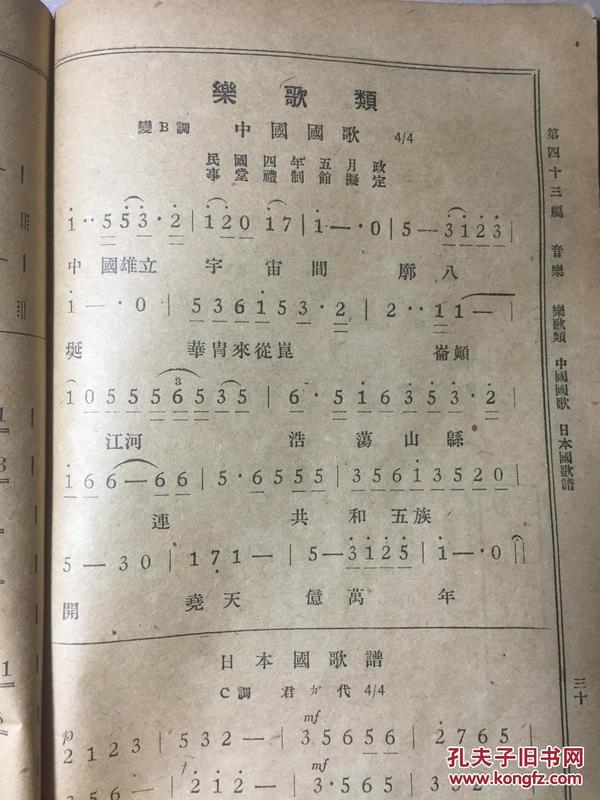 樂歌類
變B調 中國國歌 4/4
民國四年五月政
事堂禮制館擬定
1·· 5 5 3·2 | 1 2 0 1 7 | 1—·0 | 5—3 1 2 3 |
中 國雄立 宇 宙 間 廓 八
1—·0 | 5 3 6 1 5 3·2 | 2··1 1— |
埏 華胄來從崑 崙顚
1 0 5 5 5 6 5 3 5 | 6·5 1 6 3 5 3·2 |
江河 浩 蕩 山 緜
1 6 6—6 6 | 5·6 5 5 5 | 3 5 6 1 3 5 2 0 |
連 共 和 五 族
5—3 0 | 1·7 1— | 5—3 1 2 5 | 1—·0 ||
開 堯 天 億 萬 年
日本國歌譜
C調 君が代 4/4
mf
2 1 2 3 | 5 3 2— | 3 5 6 5 6 | 2·7 6 5
f mf
2 1 2— | 3·5 6 5
第四十三編 音樂 樂歌類 中國國歌 日本國歌譜
三十
孔夫子旧书网
www.kongfz.com